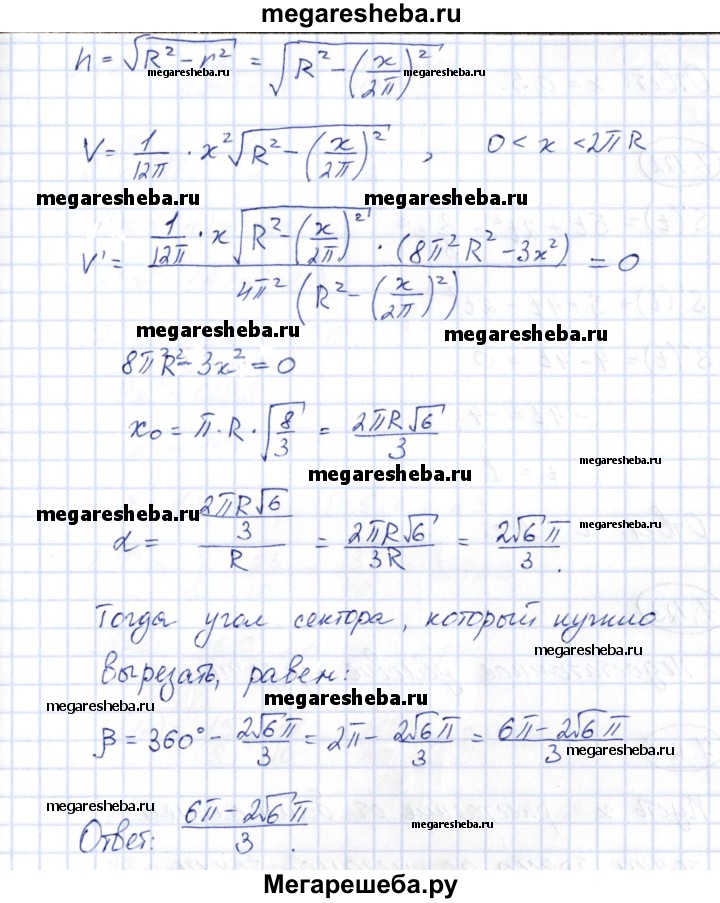 megaresheba.ru
h = √(R² − r²) = √(R² − (x/2π)²)
megaresheba.ru megaresheba.ru
V = 1/12π · x² √(R² − (x/2π)²) , 0 < x < 2πR
megaresheba.ru megaresheba.ru
V' = (1/12π · x √(R² − (x/2π)²) · (8π²R² − 3x²)) / (4π² (R² − (x/2π)²)) = 0
megaresheba.ru megaresheba.ru
8π²R² − 3x² = 0
x₀ = π · R · √(8/3) = 2πR√6/3
megaresheba.ru
megaresheba.ru
megaresheba.ru megaresheba.ru
α = (2πR√6/3)/R = 2πR√6/3R = 2√6π/3 .
Тогда угол сектора, который нужно
megaresheba.ru
вырезать, равен:
megaresheba.ru
megaresheba.ru
β = 360° − 2√6π/3 = 2π − 2√6π/3 = (6π − 2√6π)/3
megaresheba.ru
megaresheba.ru
Ответ: (6π − 2√6π)/3 .
megaresheba.ru
megaresheba.ru
Мегарешеба.ру